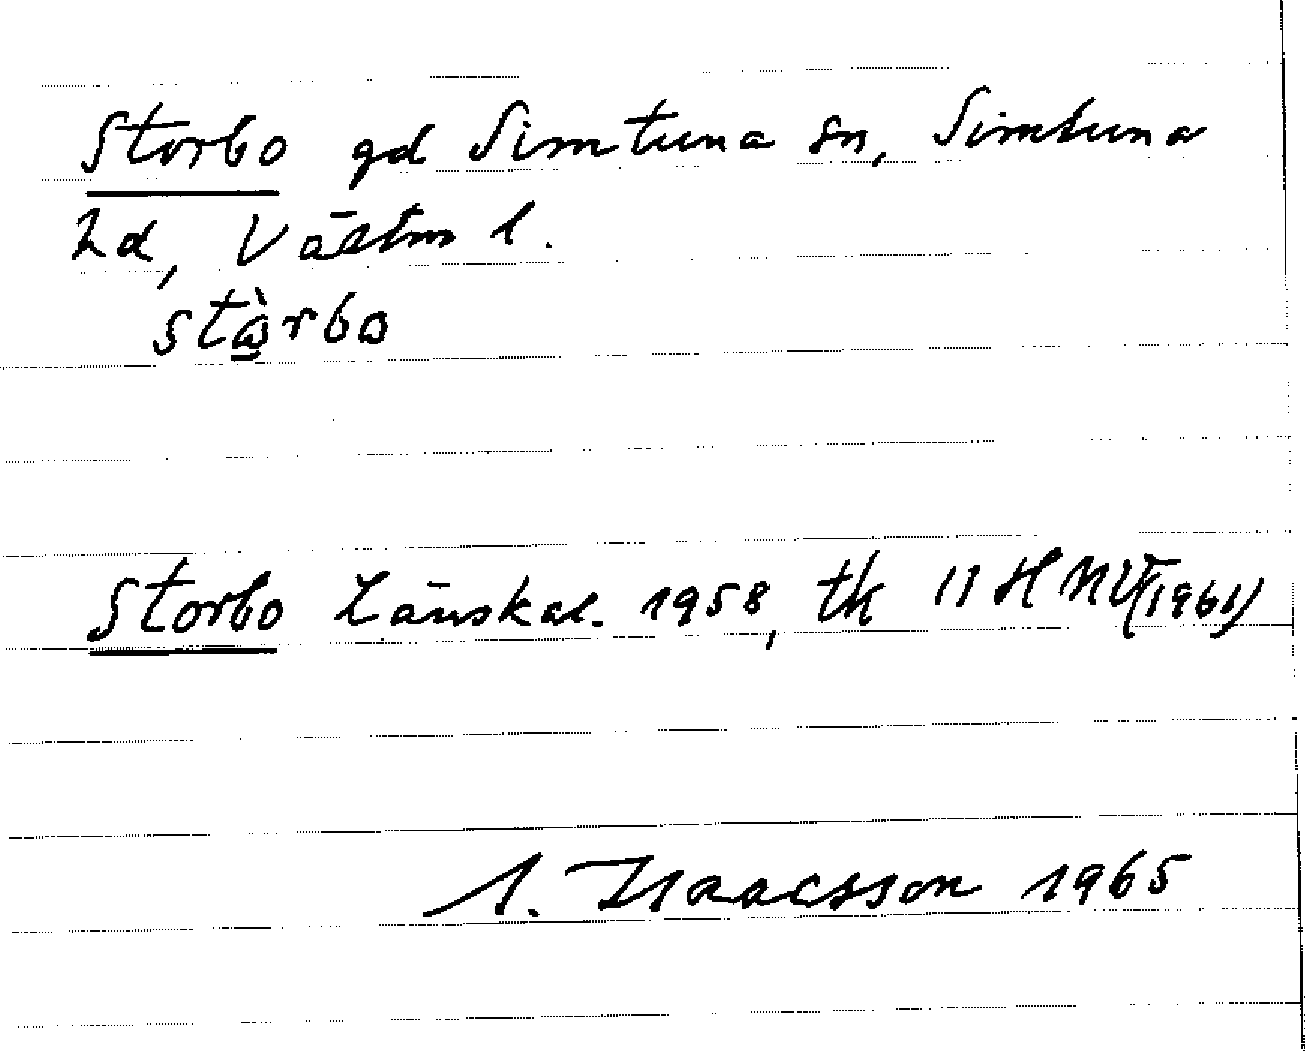 Storbo gd Simtuna sn, Simtuna
hd, Västm l.
stὰ̱rbɷ
Storbo Länskal. 1958, tk 11 H NV (1961)
A. Isaacsson 1965